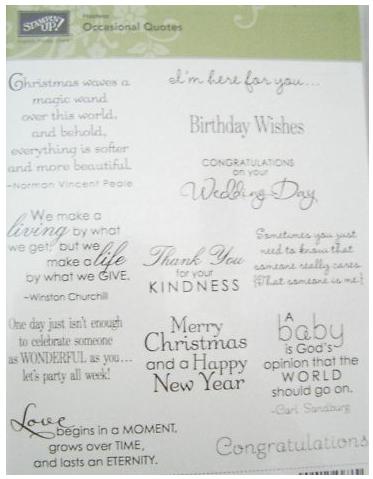 STAMPIN' UP!
Occasional Quotes
Christmas waves a
magic wand
over this world,
and behold,
everything is softer
and more beautiful.
~Norman Vincent Peale
I'm here for you...
Birthday Wishes
CONGRATULATIONS
on your
Wedding Day
We make a
living by what
we get, but we
make a life
by what we GIVE.
~Winston Churchill
Thank You
for your
KINDNESS
Sometimes you just
need to know that
someone really cares.
(That someone is me.)
One day just isn't enough
to celebrate someone
as WONDERFUL as you...
let's party all week!
Merry
Christmas
and a Happy
New Year
A
baby
is God's
opinion that the
WORLD
should go on.
~Carl Sandburg
Love
begins in a MOMENT,
grows over TIME,
and lasts an ETERNITY.
Congratulations